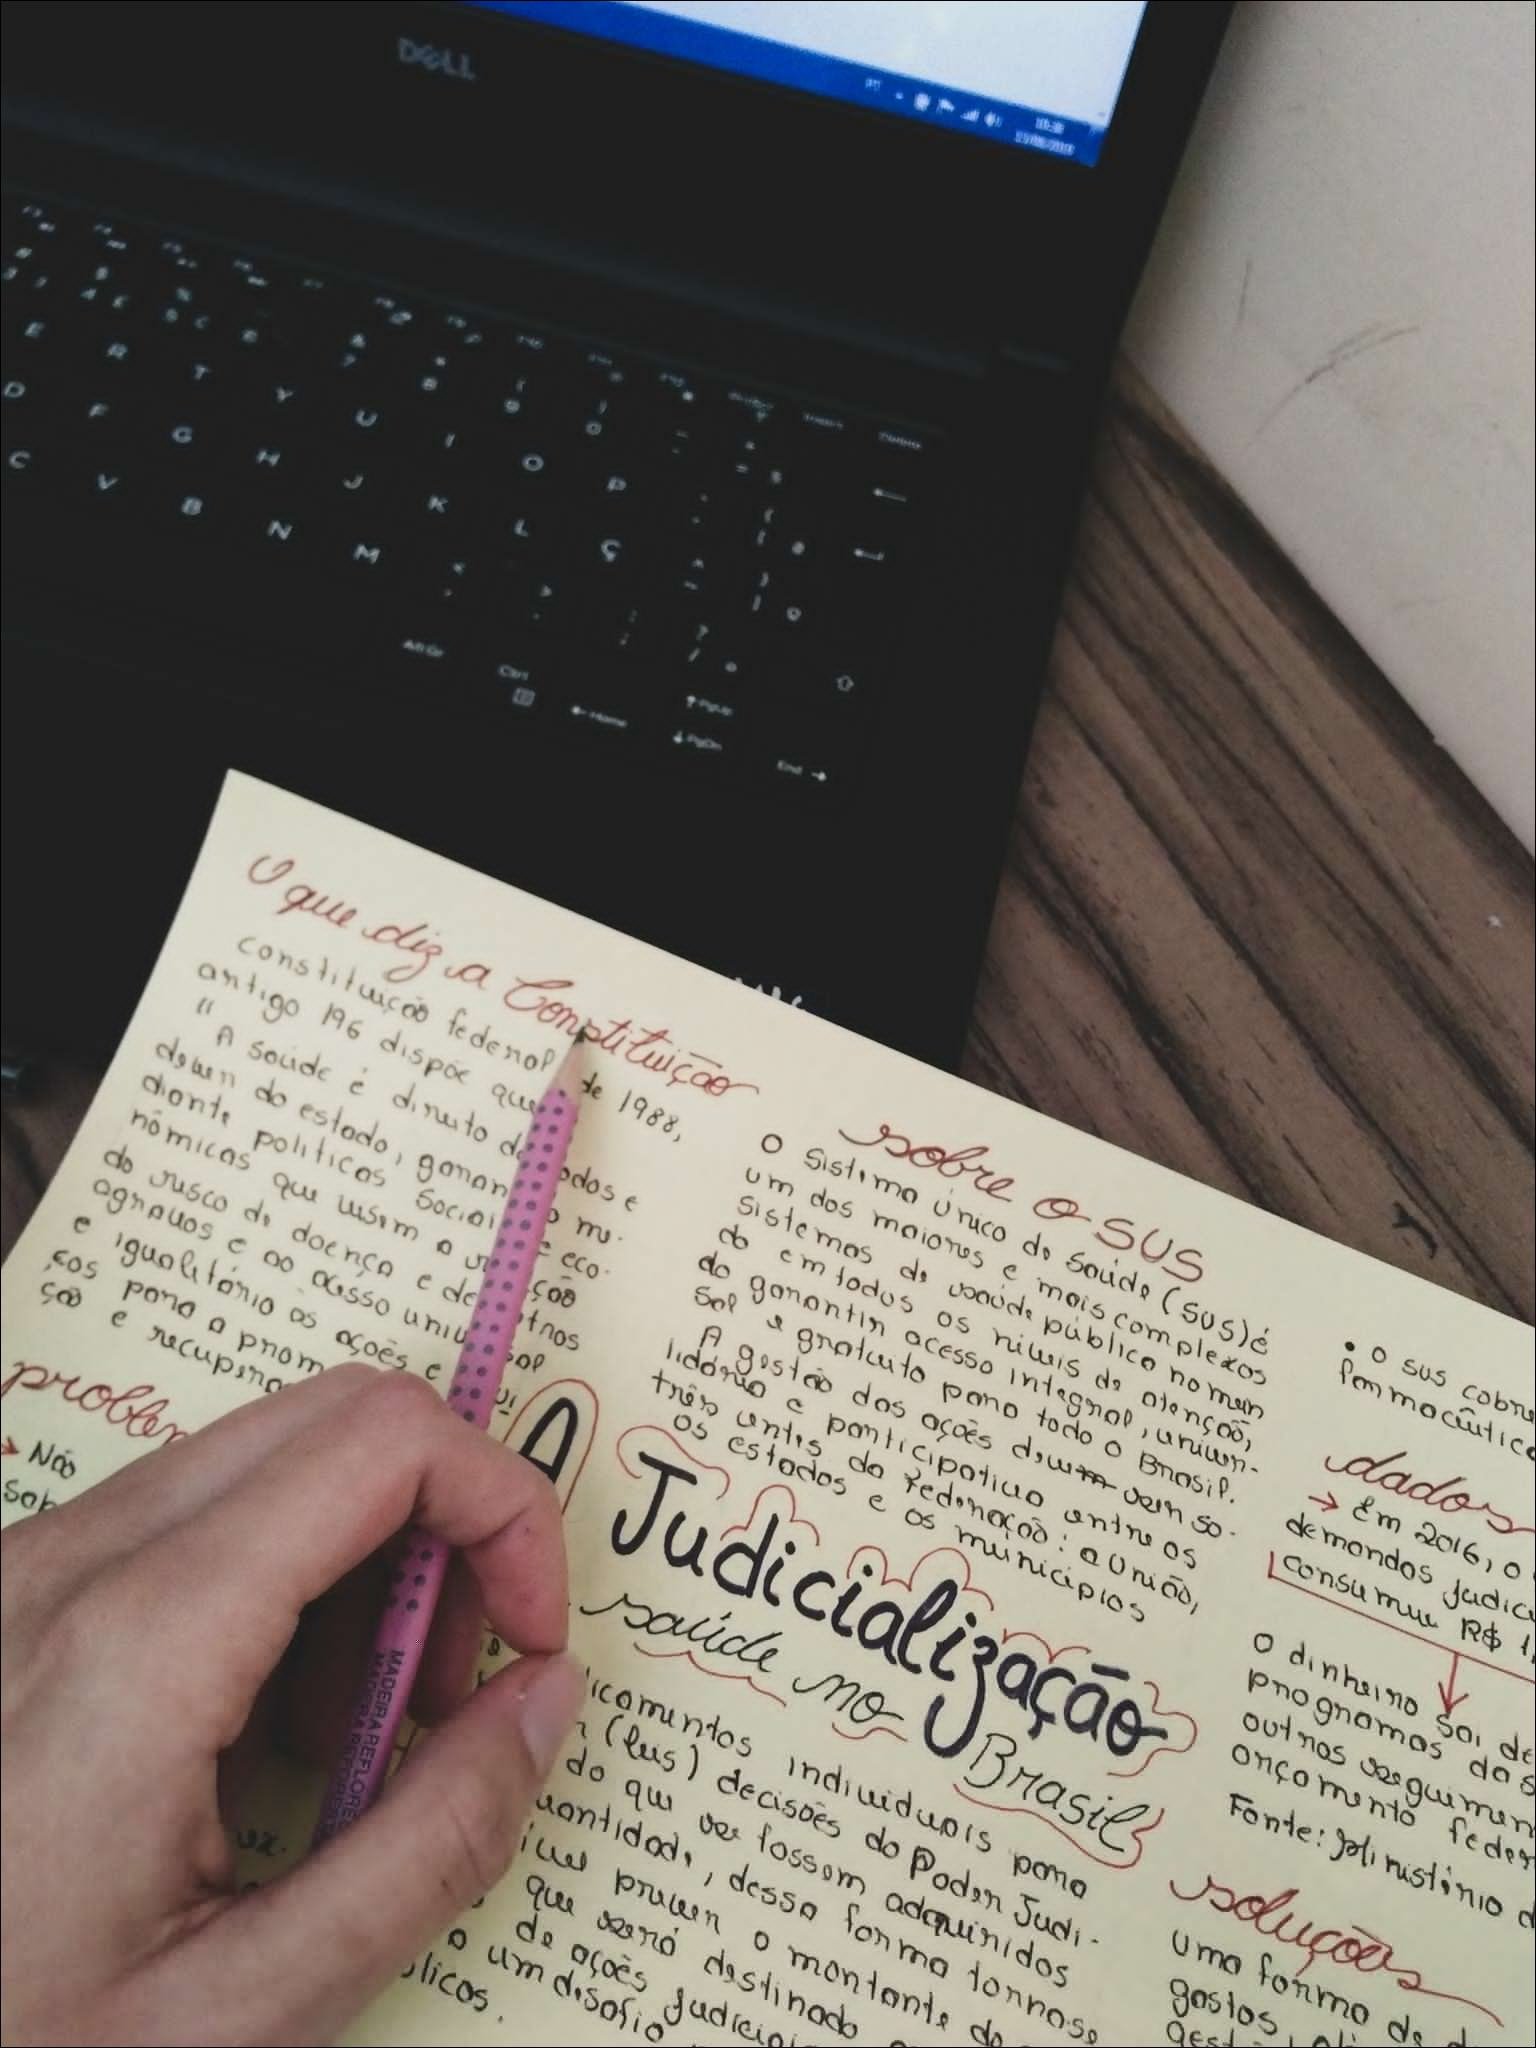 DELL
PT
E R T Y U I O P
D F G H J K L Ç
C V B N M
Alt Gr
Ctrl
Home
PgUp
PgDn
End
Insert
Delete
O que diz a Constituição
constituição federal de 1988,
antigo 196 dispõe que
" A saúde é direito de todos e
dever do estado, garan o me-
diante políticas sociai e eco-
nômicas que visem a ção
do risco de doença e de outros
agravos e ao acesso universal
e igualitário às ações e
ços para a prom
ção e recupera
problem
→ Não
sobre o SUS
O Sistema único de saúde (SUS) é
um dos maiores e mais complexos
sistemas de saúde público no mun
do em todos os níveis de atenção,
do garantir acesso integral, univer-
sal e gratuito para todo o Brasil.
A gestão das ações devem vem so-
lidária e participativa entre os
três entes da Federação: a União,
os estados e os municípios
A Judicialização
saúde no Brasil
dicamentos individuais para
(leis) decisões do Poder Judi-
do que se fossem adquiridos
uantidade, dessa forma torna-se
prever o montante de
que será destinado
de ações judiciai
um desafio
blicos.
• O SUS cobre
farmacêutica
dados
→ Em 2016, o
demandas judici
consumiu R$ 1
O dinheiro sai de
programas das
outros seguimen
orçamento feder
Fonte: Ministério d
soluções
uma forma de d
gastos
gest
MADEIRA REFLORES